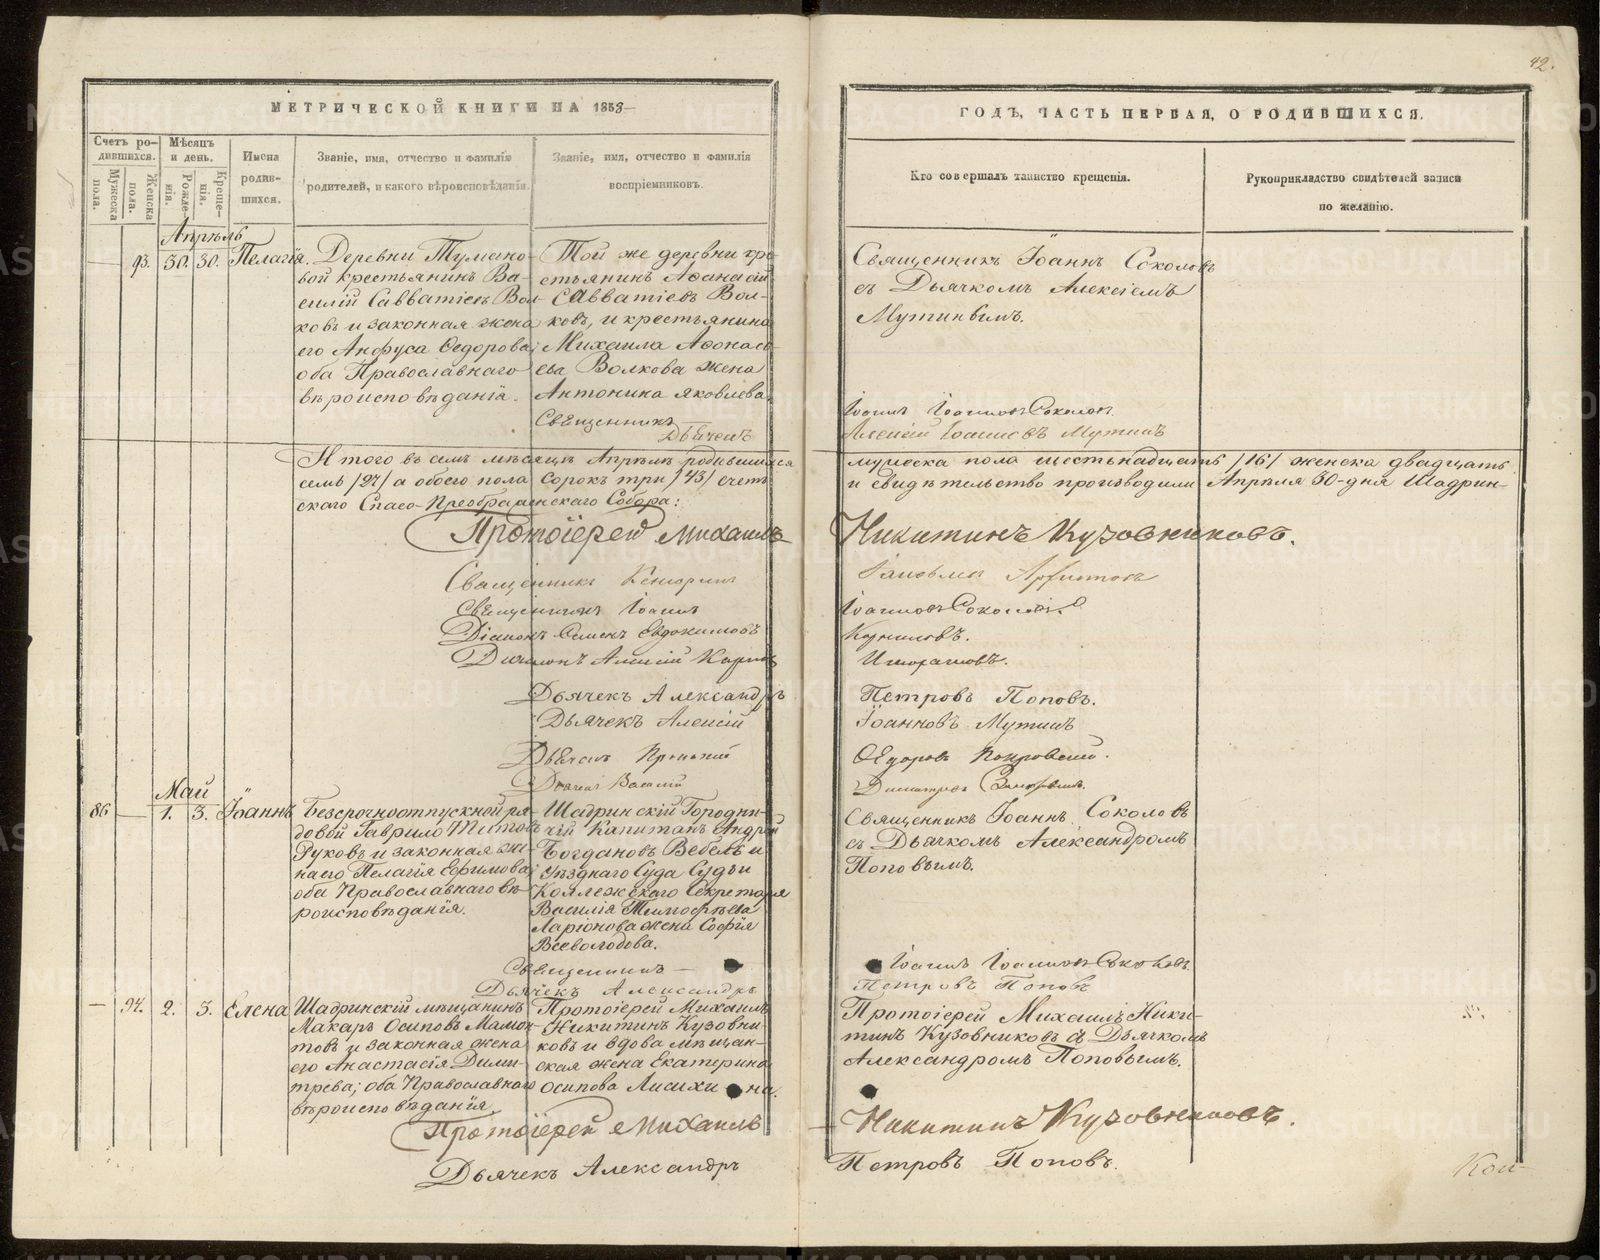 42.
МЕТРИЧЕСКОЙ КНИГИ НА 1858
Счетъ родившихся.
Мужеска пола.
Женска пола.
Мѣсяцъ и день.
Рожденія.
Крещенія.
Имена родившихся.
Званіе, имя, отчество и фамилія родителей, и какого вѣроисповѣданія.
Званіе, имя, отчество и фамилія воспріемниковъ.
Апрѣль
93. 30. 30. Пелагія.
Деревни Тумано-
вой крестьянинъ Ва-
силій Савватіевъ Вол-
ковъ и законная жена
его Анфуса Ѳедорова;
оба Православнаго
вѣроисповѣданія.
Той же деревни кре-
стьянинъ Аѳанасій
Савватіевъ Вол-
ковъ, и крестьянина
Михаила Аѳонась-
ева Волкова жена
Антонина Яковлева.
Священникъ
Дьячекъ
Итого въ семъ мѣсяцѣ Апрѣлѣ родившихся
семь /27/ а обоего пола сорок три /43/ счетъ
скаго Спасо-Преображенскаго Собора:
Протоіерей Михаилъ
Священникъ
Священникъ Іоаннъ
Діаконъ Семенъ Евдокимовъ
Діаконъ Алексій
Дьячекъ Александръ
Дьячекъ Алексій
Дьячекъ
Дьячекъ Василій
Май
86 1. 3. Іоаннъ
Безсрочноотпускной ря-
довой Гаврило Титовъ
Руковъ и законная же-
на его Пелагія Ефимова;
оба Православнаго вѣ-
роисповѣданія.
Шадринскій Городни-
чій Капитанъ Андрей
Богдановъ Вебель и
Уѣзднаго Суда Судьи
Коллежскаго Секретаря
Василія Тимоѳѣева
Ларіонова жена Софія
Всеволодова.
Священникъ
Дьячекъ Александръ
94. 2. 3. Елена
Шадринскій мѣщанинъ
Макаръ Осиповъ Мамон-
товъ и законная жена
его Анастасія Дими-
трева; оба Православнаго
вѣроисповѣданія.
Протоіерей Михаилъ
Никитинъ Кузовни-
ковъ и вдова мѣщан-
ская жена Екатерина
Осипова Лисихина.
Протоіерей Михаилъ
Дьячекъ Александръ
ГОДЪ, ЧАСТЬ ПЕРВАЯ, О РОДИВШИХСЯ.
Кто совершалъ таинство крещенія.
Рукоприкладство свидѣтелей записи по желанію.
Священникъ Іоаннъ Соколовъ
съ Дьячкомъ Алексіемъ
Мутинымъ.
Іоаннъ Іоанновъ Соколовъ
Алексій Іоанновъ Мутинъ
мужеска пола шестьнадцать /16/ женска двадцать
и свидѣтельство производили Апрѣля 30-дня Шадрин-
Никитинъ Кузовниковъ.
Іоанновъ Соколовъ
Корниловъ.
Петровъ Поповъ.
Іоанновъ Мутинъ
Ѳедоровъ Покровскій.
Священникъ Іоаннъ Соколовъ
съ Дьячкомъ Александромъ
Поповымъ.
Іоаннъ Іоанновъ Соколовъ
Петровъ Поповъ
Протоіерей Михаилъ Ники-
тинъ Кузовниковъ съ Дьячкомъ
Александромъ Поповымъ.
Никитинъ Кузовниковъ.
Петровъ Поповъ.
METRIKI.GASO-URAL.RU